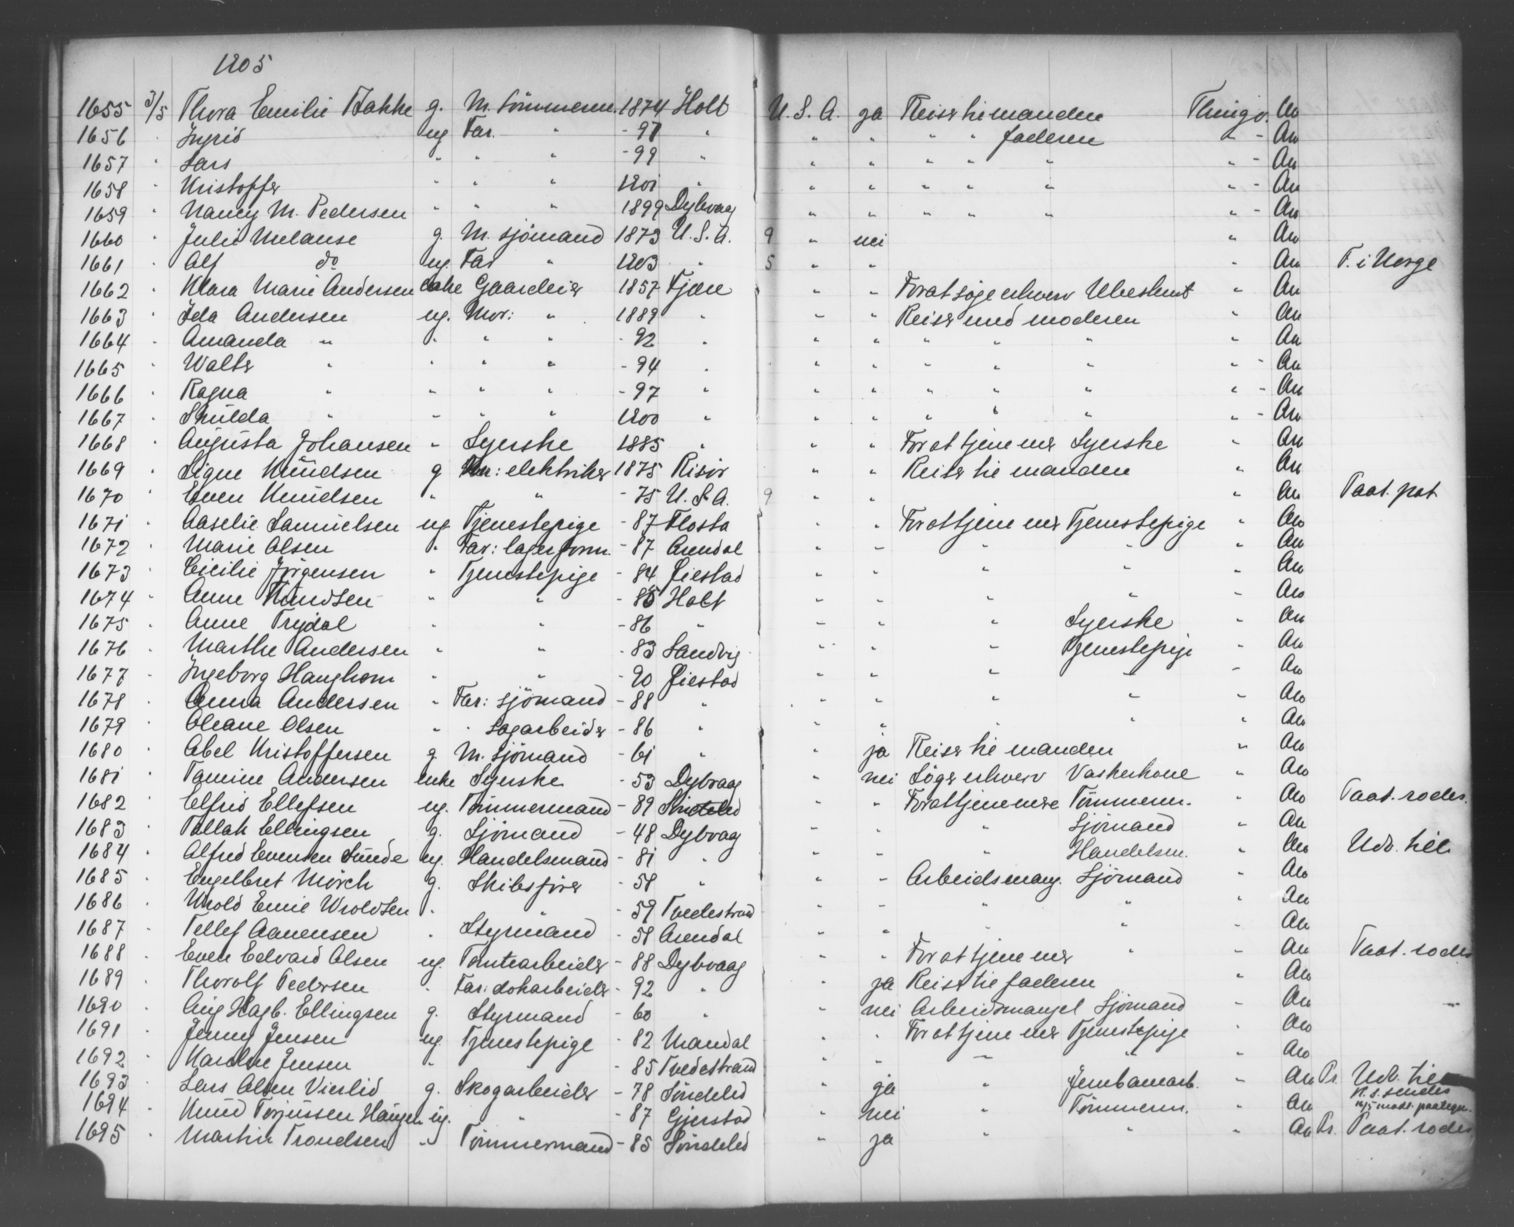 1205
1655 3/5 Thora Emilie Bakke g. M. tömmerm. 1874 Holt U.S.A. ja Reiser til manden Thingv. An
1656 " Ingrid ug Far. " - 97 " " " " " faderen " - An
1657 " Lars " " " - 99 " " " " " " " - An
1658 " Kristoffer " " " 1201 " " " " " " " - An
1659 " Nancy M. Pedersen " " " 1899 Dybvaag " " " " " " - An
1660 " Julie Melanse g. M. sjömand 1873 U.S.A. 9 " nei " An
1661 " Alf do ug. Far " 1203 " 5 " " " An T. i Norge
1662 " Klara Marie Andersen enke Gaardeier 1857 Fjære " " For at söge erhverv Ubestemt " An
1663 " Ida Andersen ug. Mor: " 1889 " " " Reiser med moderen " An
1664 " Amanda " " " " - 92 " " " " " " " An
1665 " Walter " " " " - 94 " " " " " " " - An
1666 " Ragna " " " " - 97 " " " " " " " - An
1667 " Skulda " " " " 1200 " " " " " " " - An
1668 " Augusta Johansen " Syerske 1885 " " " For at tjene mer Syerske " An
1669 " Signe Knudsen g M: elektriker 1875 Risör " " Reiser til manden " An
1670 " Even Knudsen " " - 75 U.S.A. 9 " " " An Paat. pat.
1671 " Aaselie Samuelsen ug Tjenestepige - 87 Flosta " " For at tjene mer Tjenestepige " An
1672 " Marie Olsen " Far: lagerform. - 87 Arendal " - " " " An
1673 " Cicilie Jörgensen " Tjenestepige - 84 Öiestad " " " " " An
1674 " Anne Knudsen " " - 85 Holt " " " " " An
1675 " Anne Trydal " " - 86 " " " " Syerske " An
1676 " Marthe Andersen " " - 83 Sandvig " " " Tjenestepige " An
1677 " Ingeborg Haughom " " - 90 Öiestad " " " " - An
1678 " Anna Andersen " Far: sjömand - 88 " " " " " " An
1679 " Oleane Olsen " " Sagarbeider - 86 " " " " " " An
1680 " Abel Kristoffersen g M. sjömand - 61 " " ja Reiser til manden " An
1681 " Tomine Andersen enke Syerske - 53 Dybvaag " nei Söger erhverv Vaskerkone " An
1682 " Elfrid Ellefsen ug. Tömmermand - 89 Söndeled " " For at tjene mere Tömmerm. " An Paat. rodes.
1683 " Tallak Ellingsen g. Sjömand - 48 Dybvaag " " " Sjömand " An
1684 " Alfred Evensen Sunde ug. Handelsmand - 81 " " " " Handelsm. " An Udv. till
1685 " Engelbret Mörch g. Skibsförer - 58 " " - Arbeidsmang. Sjömand " An
1686 " Wrold Emil Wroldsen " " - 59 Tvedestrand " " " " " An
1687 " Tellef Aanensen " Styrmand - 58 Arendal " " " " " An
1688 " Even Edvard Olsen ug. Tomtearbeider - 88 Dybvaag " " For at tjene mer " " An Paat. rodes
1689 " Thorolf Pedersen " Far: dokarbeider - 92 " " ja Reiser til faderen " An
1690 " Aug. Hagb. Ellingsen g. Styrmand - 60 " " nei Arbeidsmangel Sjömand " An
1691 " Jenny Jensen ug Tjenestepige - 82 Mandal " " For at tjene mer Tjenestepige " An
1692 " Karoline Jensen " " - 85 Tvedestrand " " " " " An
1693 " Lars Olsen Vierlid g. Skogarbeider - 78 Söndeled " ja " Jernbanearb. " An Pr. Udv. till
1694 " Knud Torjussen Haugen ug. " - 87 Gjerstad " nei " Tömmerm. " An
1695 " Martin Trondsen " Tömmermand - 85 Söndeled " ja " " " An Pr. Paat. rodes